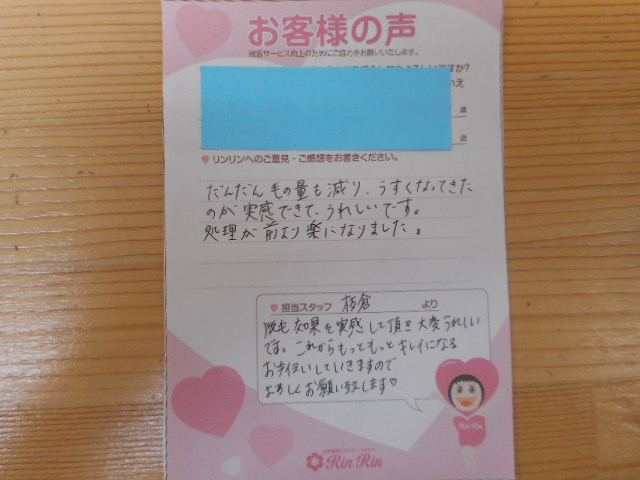 お客様の声
後各サービス向上のためにご協力をお願いいたします。
すか?
いえ
歳
店
リンリンへのご意見・ご感想をお書きください。
だんだん毛の量も減り、うすくなってきた
のが実感できて、うれしいです。
処理が前より楽になりました。
担当スタッフ 板倉 より
脱毛効果を実感して頂き大変うれしい
です。これからもっともっとキレイになる
お手伝いしていきますので
よろしくお願い致します♡
Rin Rin
Rin Rin